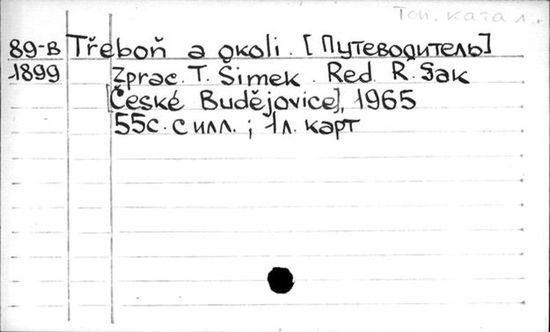 Топ. катал.
89-В Třeboň a okoli. [Путеводитель]
1899 Zprac. T. Šimek. Red. R. Šak
[České Budějovice], 1965
55с. с илл.; 1л. карт